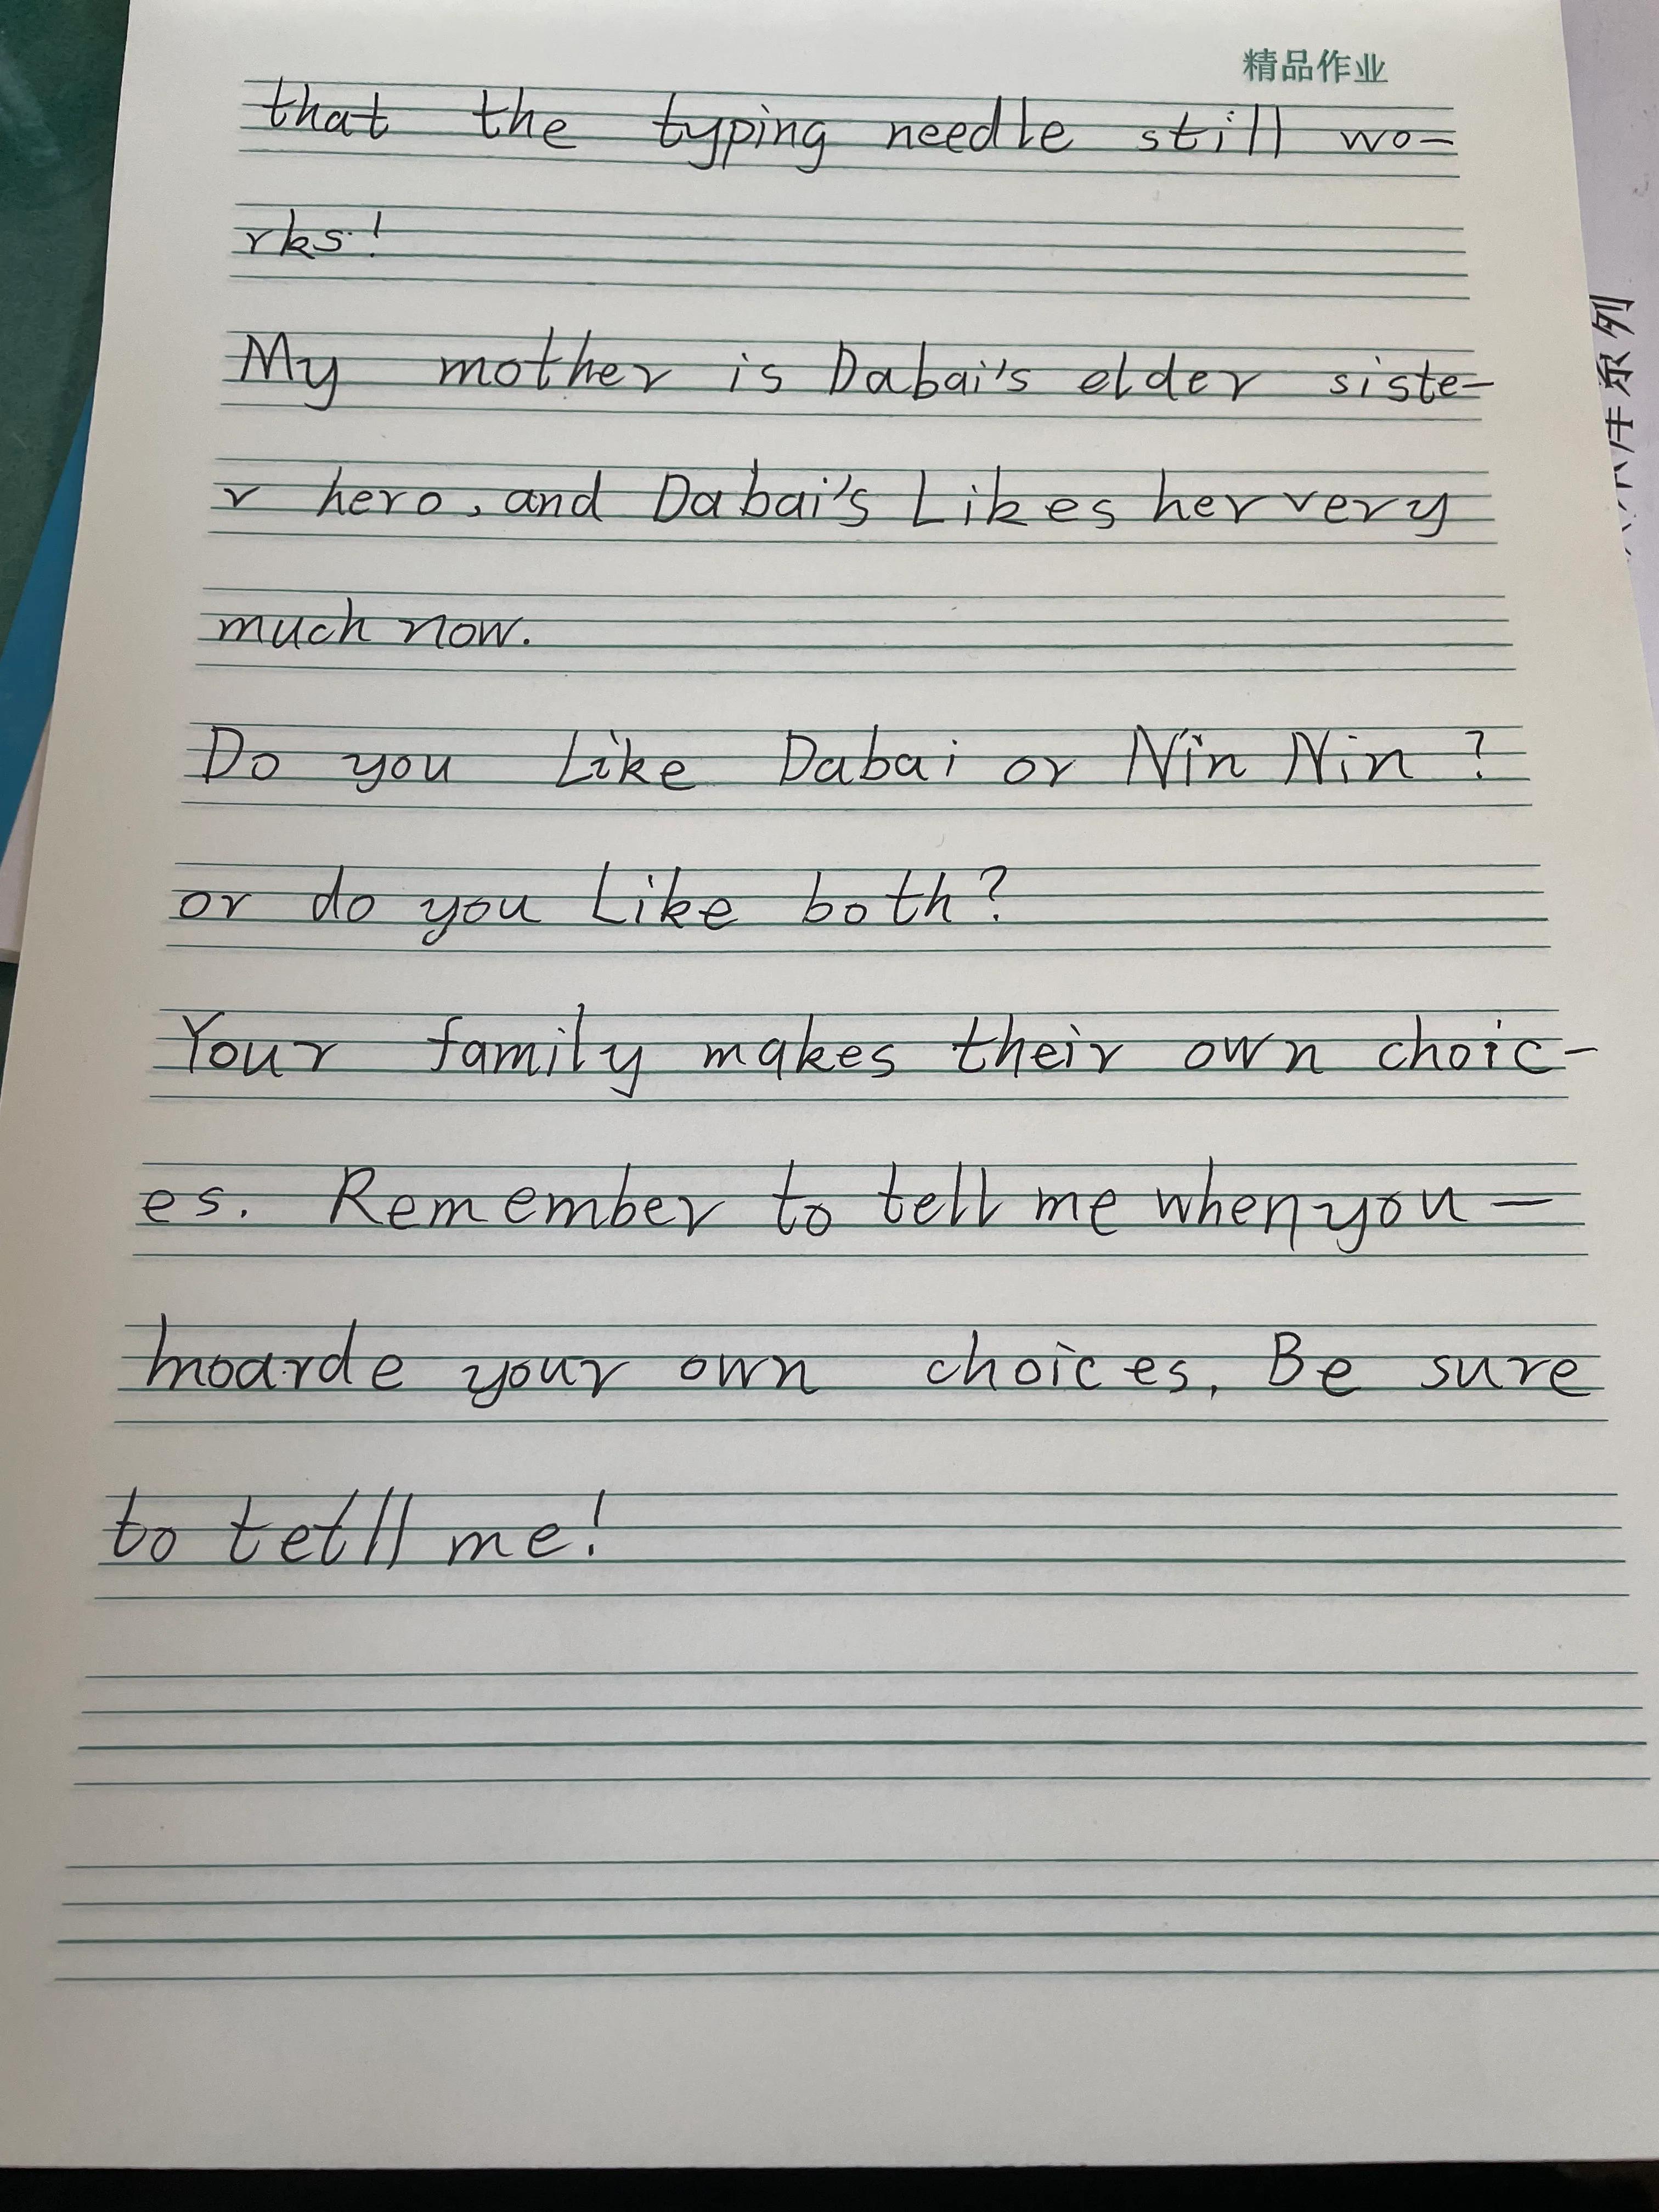 精品作业
that the typing needle still wo-
rks!
My mother is Dabai's elder siste-
r hero, and Dabai's Likes her very
much now.
Do you Like Dabai or Nin Nin ?
or do you Like both?
Your family makes their own choic-
es. Remember to tell me when you -
your own choices. Be sure
to tetll me!
列
系